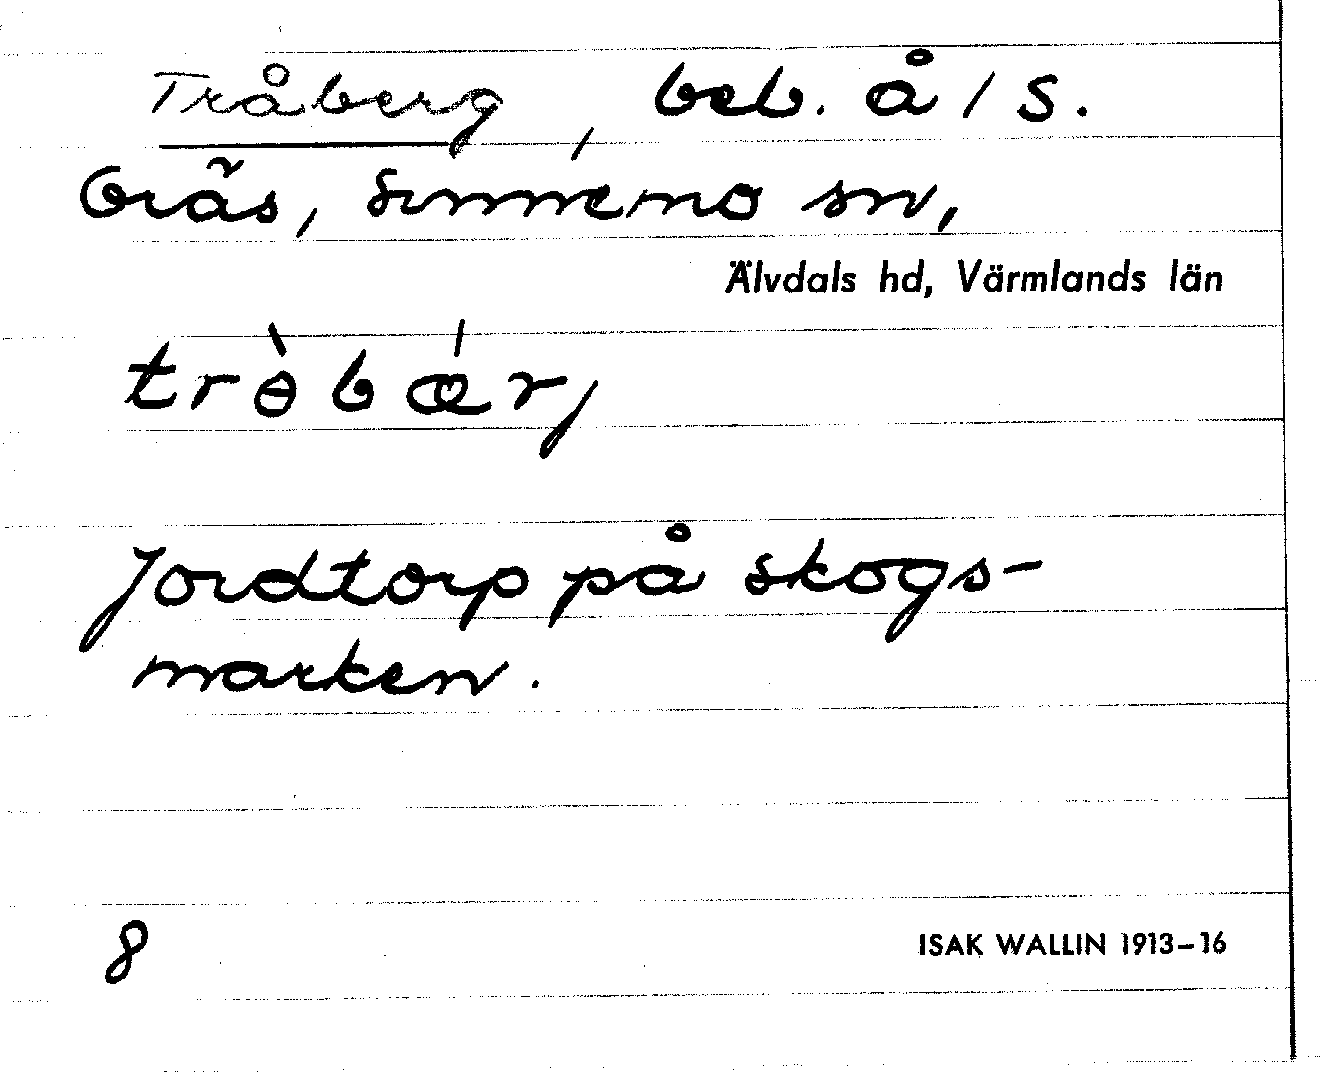 Tråberg, beb. å / S.
Gräs, Sunnemo sn,
Älvdals hd, Värmlands län
trɵ̀bǽr,
Jordtorp på skogs-
marken.
8
ISAK WALLIN 1913–16